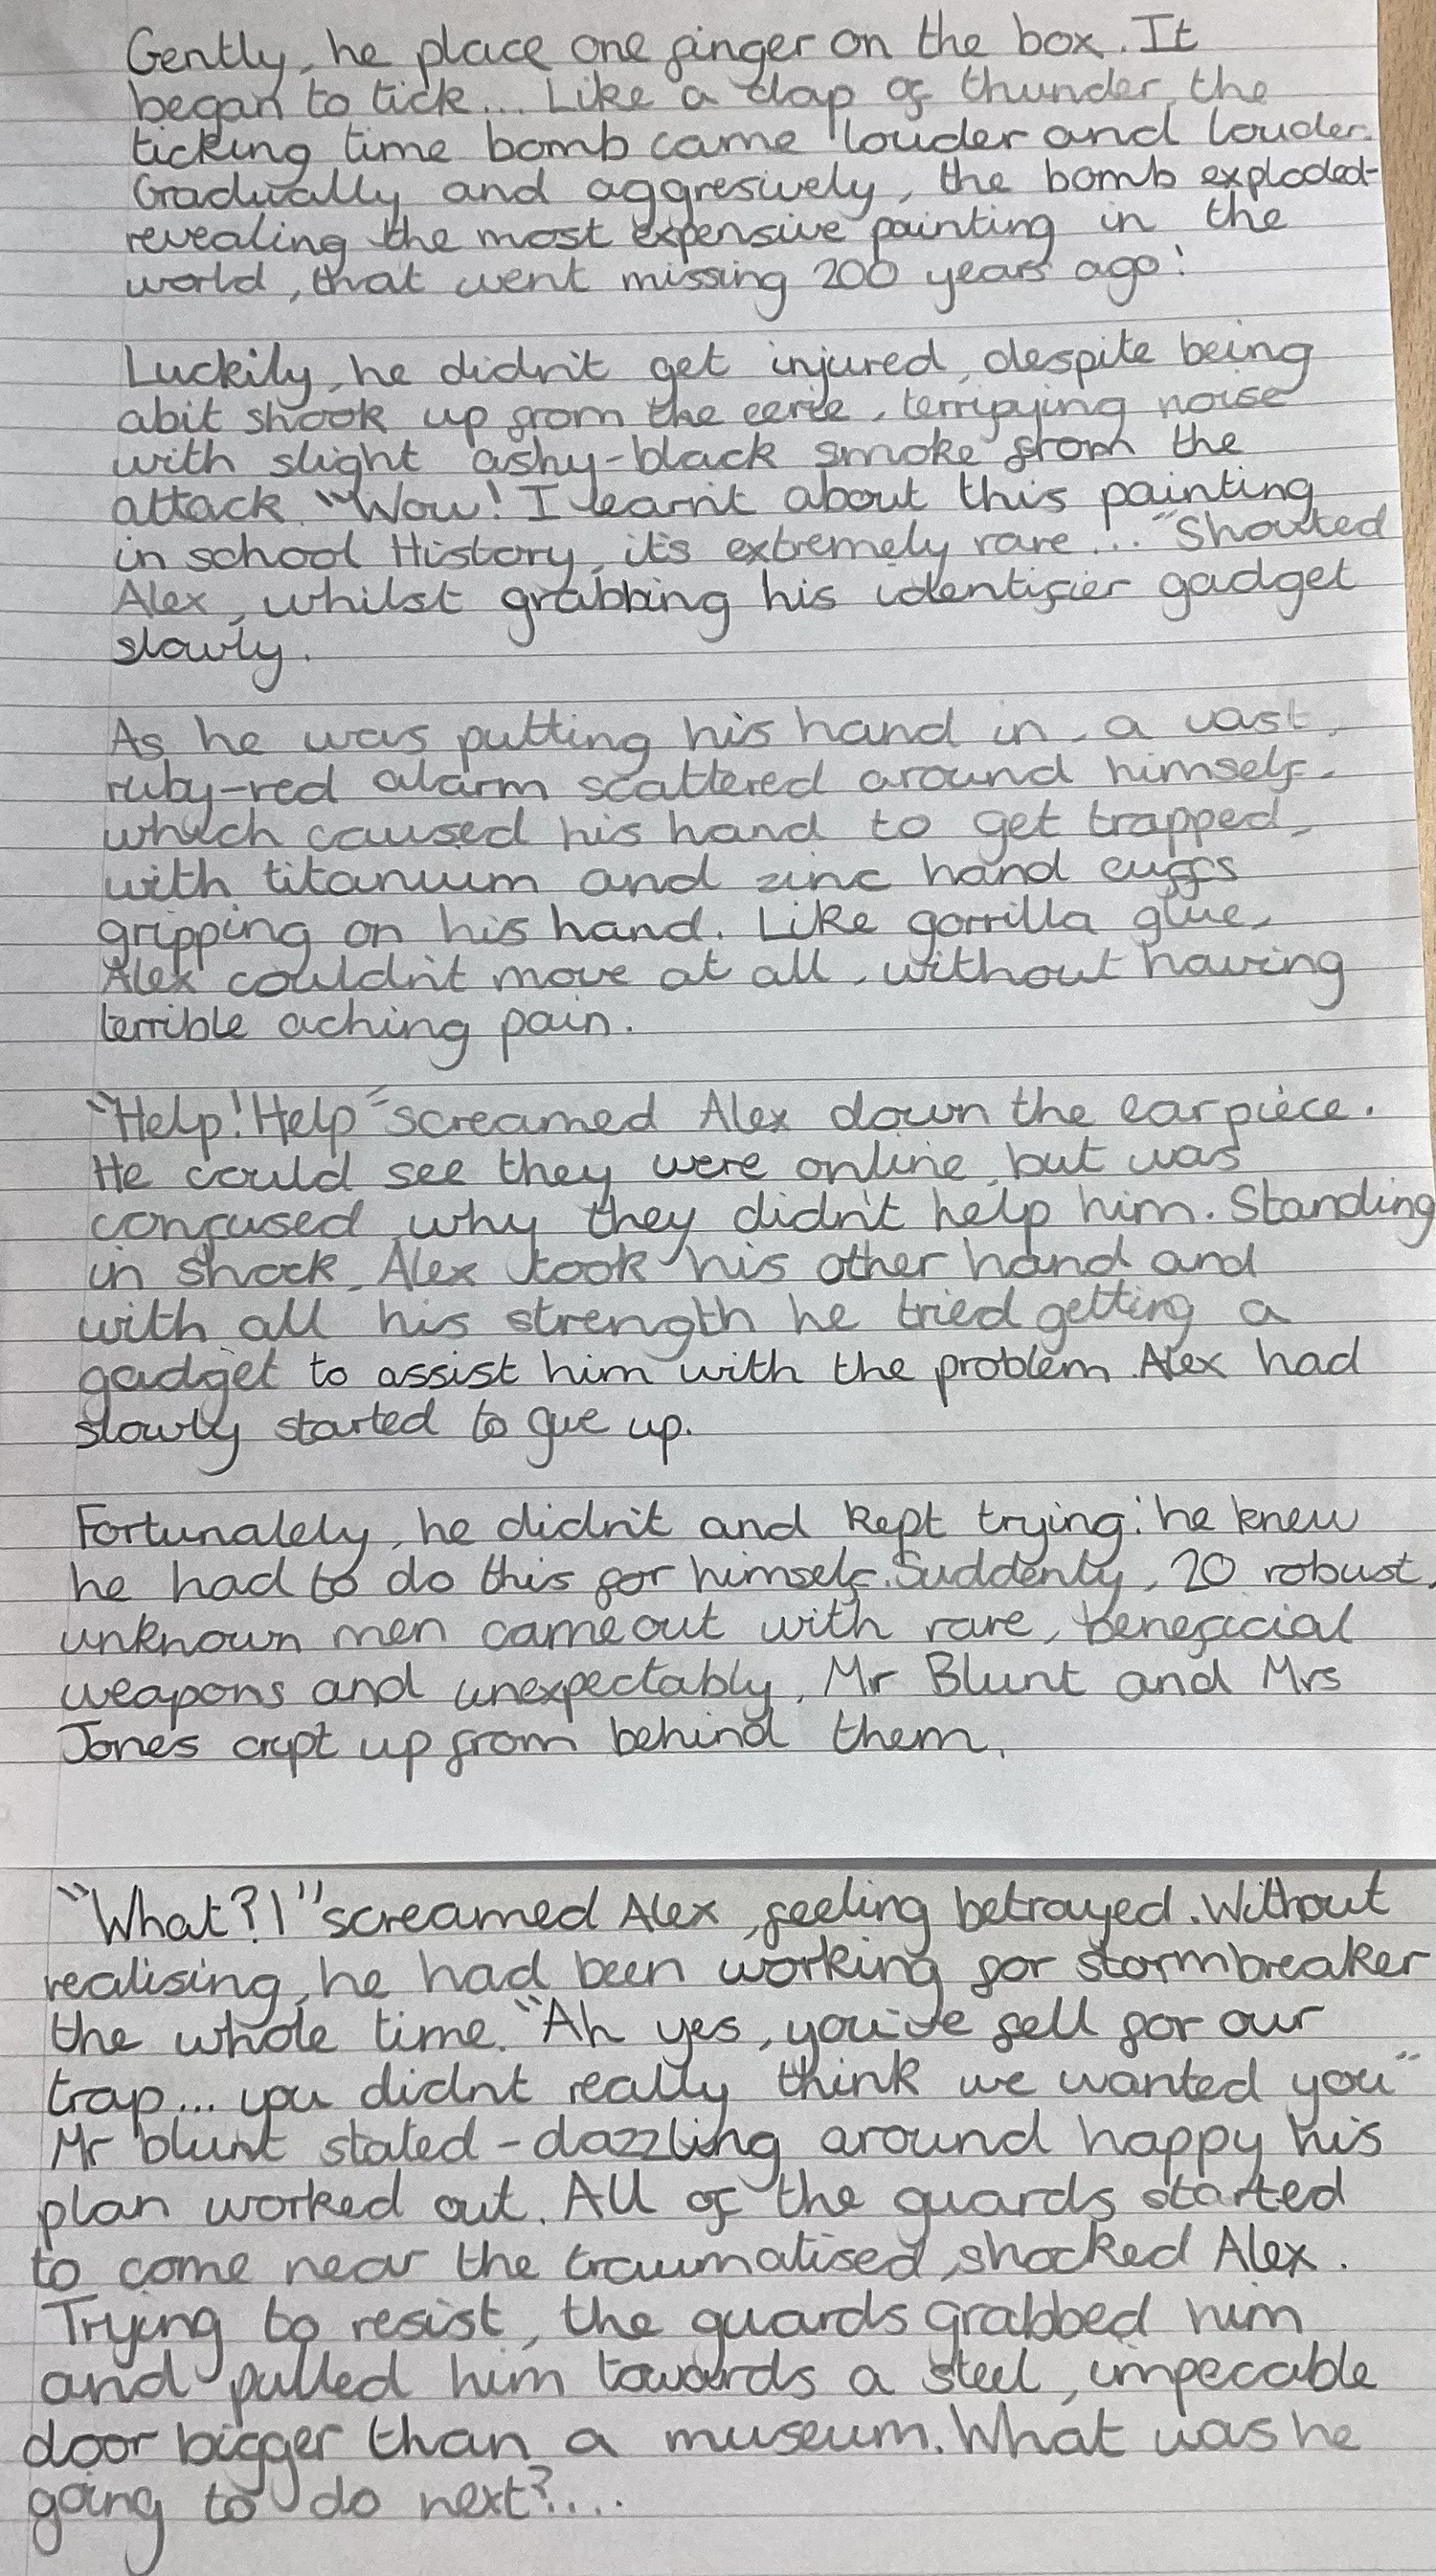 Gently, he place one finger on the box. It
began to tick... Like a clap of thunder, the
ticking time bomb came louder and louder.
Gradually and aggresively, the bomb exploded-
revealing the most expensive painting in the
world, that went missing 200 years ago!
Luckily, he didn't get injured, despite being
abit shook up from the eerie, terrifying noise
with slight ashy-black smoke from the
attack. "Wow! I learn't about this painting
in school History, it's extremely rare..." Shouted
Alex, whilst grabbing his identifier gadget
slowly.
As he was putting his hand in, a vast,
ruby-red alarm scattered around himself,
which caused his hand to get trapped,
with titanium and zinc hand cuffs
gripping on his hand. Like gorrilla glue,
Alex couldn't move at all, without having
terrible aching pain.
"Help! Help" screamed Alex down the earpiece.
He could see they were online, but was
confused why they didn't help him. Standing
in shock, Alex took his other hand and
with all his strength he tried getting a
gadget to assist him with the problem. Alex had
slowly started to give up.
Fortunately, he didn't and kept trying: he knew
he had to do this for himself. Suddenly, 20 robust,
unknown men came out with rare, beneficial
weapons and unexpectably, Mr Blunt and Mrs
Jones crept up from behind them.
"What?!" screamed Alex, feeling betrayed. Without
realising, he had been working for stormbreaker
the whole time. "Ah yes, you've fell for our
trap... you didnt really think we wanted you"
Mr blunt stated - dazzling around happy his
plan worked out. All of the guards started
to come near the traumatised, shocked Alex.
Trying to resist, the guards grabbed him
and pulled him towards a steel, impecable
door bigger than a museum. What was he
going to do next?....